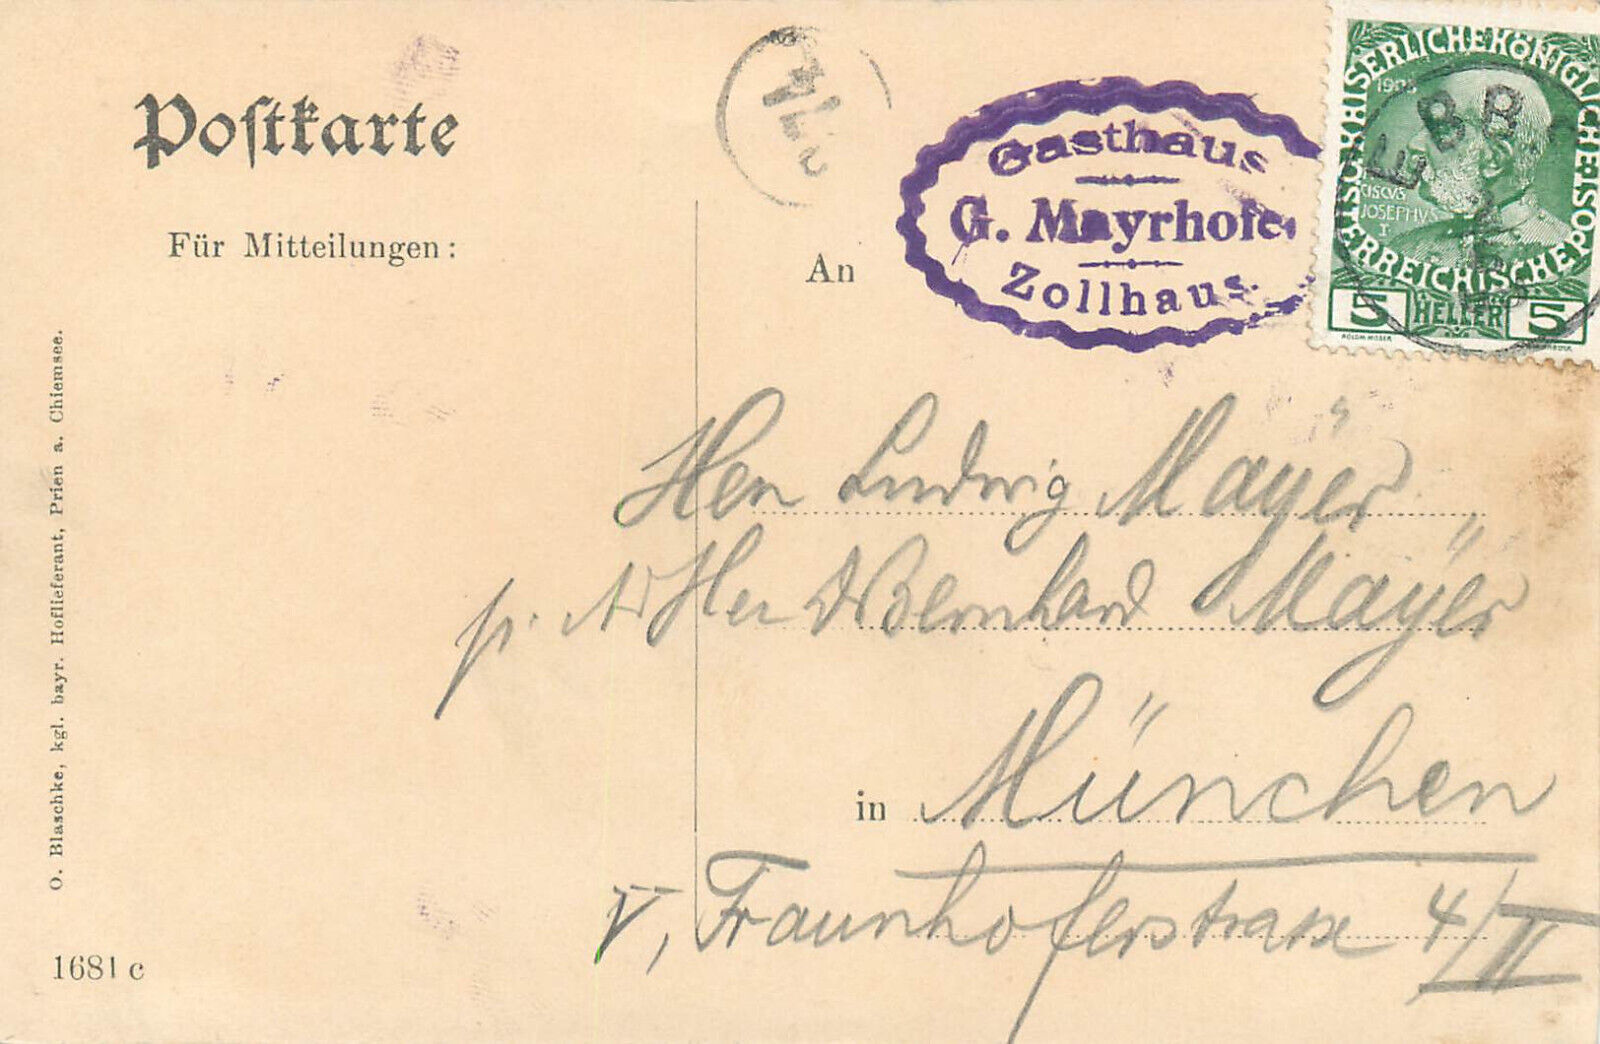 Postkarte
Für Mitteilungen:
An
Gasthaus
G. Mayrhofe
Zollhaus.
KAISERLICHE KÖNIGLICHE OESTERREICHISCHE POST
1908
CISCVS
JOSEPHVS
I
5 HELLER 5
KOLOM. MOSER
EBB
Herr Ludwig Mayer
p. Adr Herr Bernhard Mayer
in München
V, Fraunhoferstrasse 4/II
O. Blaschke, kgl. bayr. Hoflieferant, Prien a. Chiemsee.
1681 c